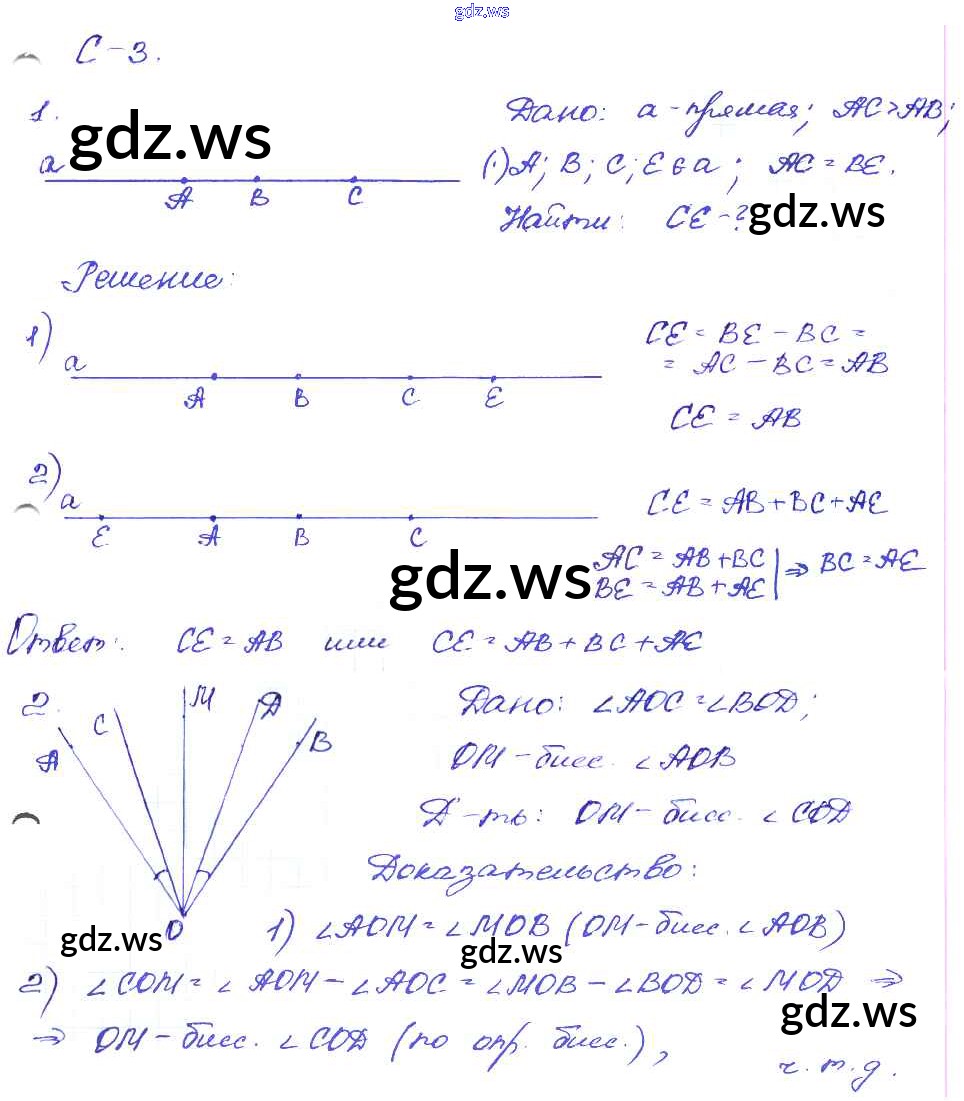 gdz.ws
С-3.
1.
gdz.ws
a
A B C
Дано: a - прямая; AC > AB;
(·) A; B; C; E ∈ a; AC = BE.
Найти: CE - ?
gdz.ws
Решение:
1)
a
A B C E
CE = BE - BC =
= AC - BC = AB
CE = AB
2)
a
E A B C
CE = AB + BC + AE
AC = AB + BC | ⇒ BC = AE
BE = AB + AE |
gdz.ws
Ответ: CE = AB или CE = AB + BC + AE
2.
A C M D B
O
Дано: ∠AOC = ∠BOD;
OM - бисс. ∠AOB
Д-ть: OM - бисс. ∠COD
Доказательство:
1) ∠AOM = ∠MOB (OM - бисс. ∠AOB)
gdz.ws
gdz.ws
2) ∠COM = ∠AOM - ∠AOC = ∠MOB - ∠BOD = ∠MOD ⇒
gdz.ws
⇒ OM - бисс. ∠COD (по опр. бисс.),
ч.т.д.